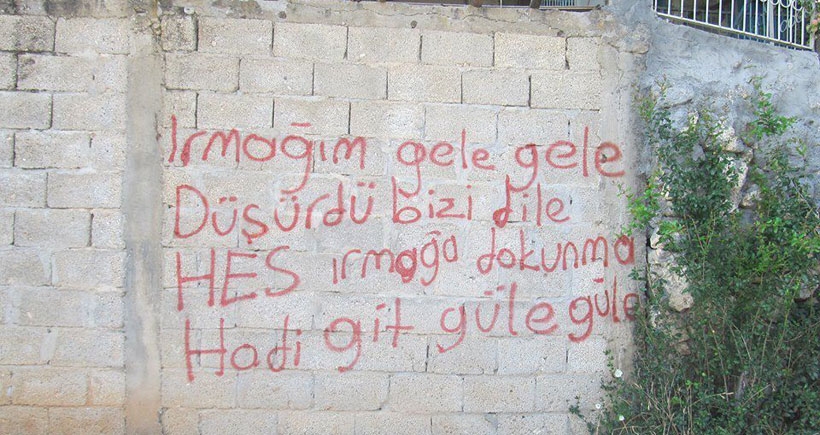 Irmağım gele gele
Düşürdü bizi dile
HES ırmağa dokunma
Hadi git güle güle